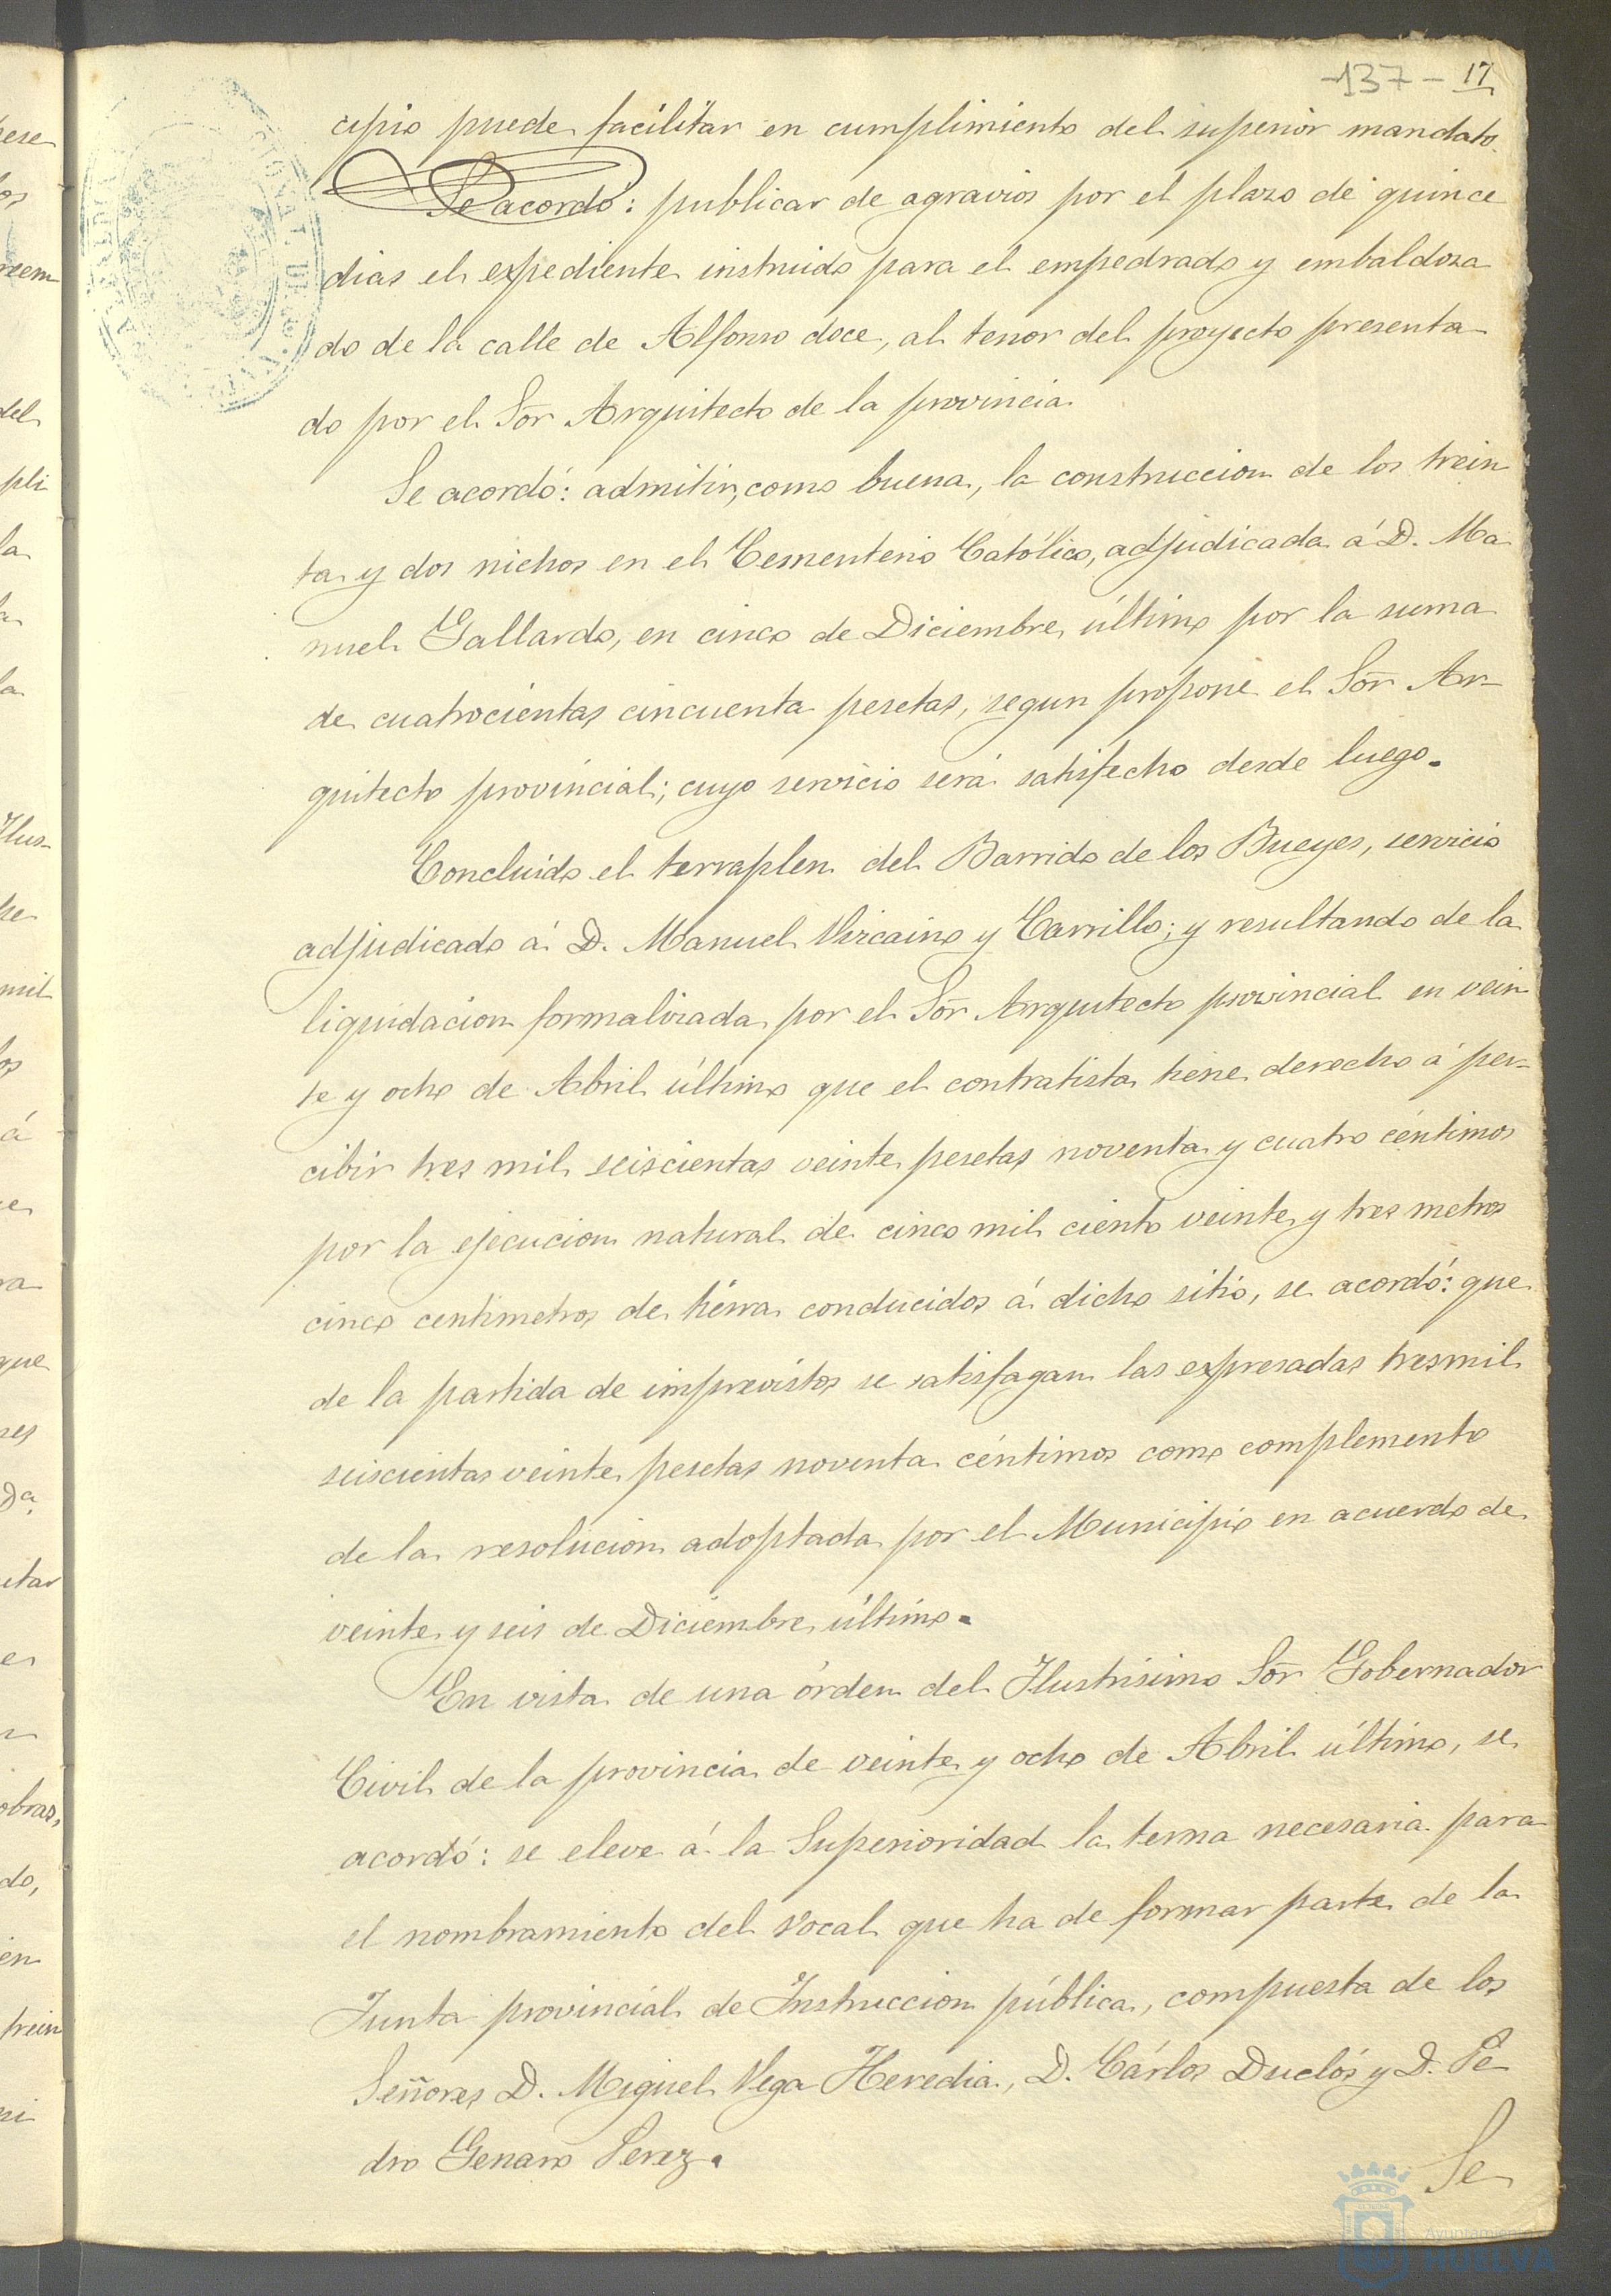 -137- 17
cipio puede facilitar en cumplimiento del superior mandato.
Se acordó: publicar de agravios por el plazo de quince
dias el expediente instruido para el empedrado y embaldosa
do de la calle de Alfonso doce, al tenor del proyecto presenta
do por el Sor Arquitecto de la provincia.
Se acordó: admitir, como buena, la construccion de los trein
ta y dos nichos en el Cementerio Católico, adjudicada á D. Ma
nuel Gallardo, en cinco de Diciembre último por la suma
de cuatrocientas cincuenta pesetas, segun propone el Sor Ar-
quitecto provincial; cuyo servicio será satisfecho desde luego.
Concluido el terraplen del Barrido de los Bueyes, servicio
adjudicado á D. Manuel Vizcaino y Carrillo; y resultando de la
liquidacion formalizada por el Sor Arquitecto provincial en vein
te y ocho de Abril último que el contratista tiene derecho á per-
cibir tres mil seiscientas veinte pesetas noventa y cuatro céntimos
por la ejecucion natural de cinco mil ciento veinte y tres metros
cinco centimetros de tierra conducidos á dicho sitio, se acordó: que
de la partida de imprevistos se satisfagan las expresadas tresmil
seiscientas veinte pesetas noventa céntimos como complemento
de la resolucion adoptada por el Municipio en acuerdo de
veinte y seis de Diciembre último.
En vista de una órden del Ilustrisimo Sor Gobernador
Civil de la provincia de veinte y ocho de Abril último, se
acordó: se eleve á la Superioridad la terna necesaria para
el nombramiento del Vocal que ha de formar parte de la
Junta provincial de Instruccion pública, compuesta de los
Señores D. Miguel Vega Heredia, D. Cárlos Duclós y D. Pe
dro Genaro Perez.
Se
Ayuntamiento
HUELVA